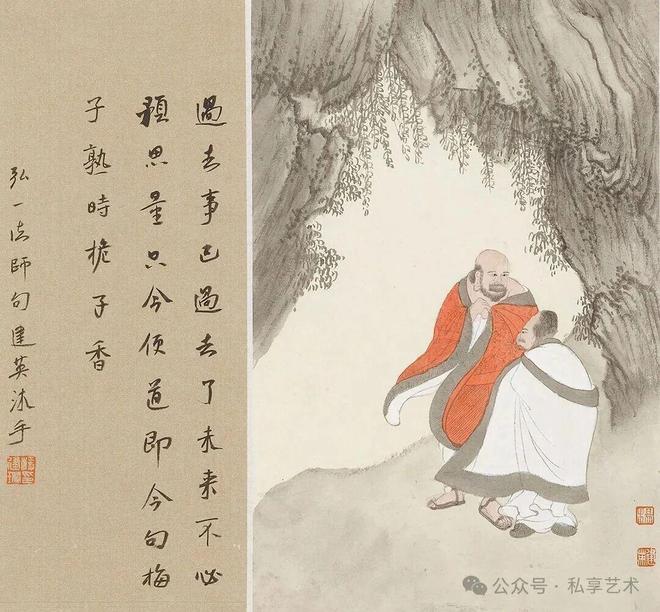 過去事已過去了未來不必
預思量只今便道即今句梅
子熟時栀子香
弘一法師句建英沐手
公众号 · 私享艺术